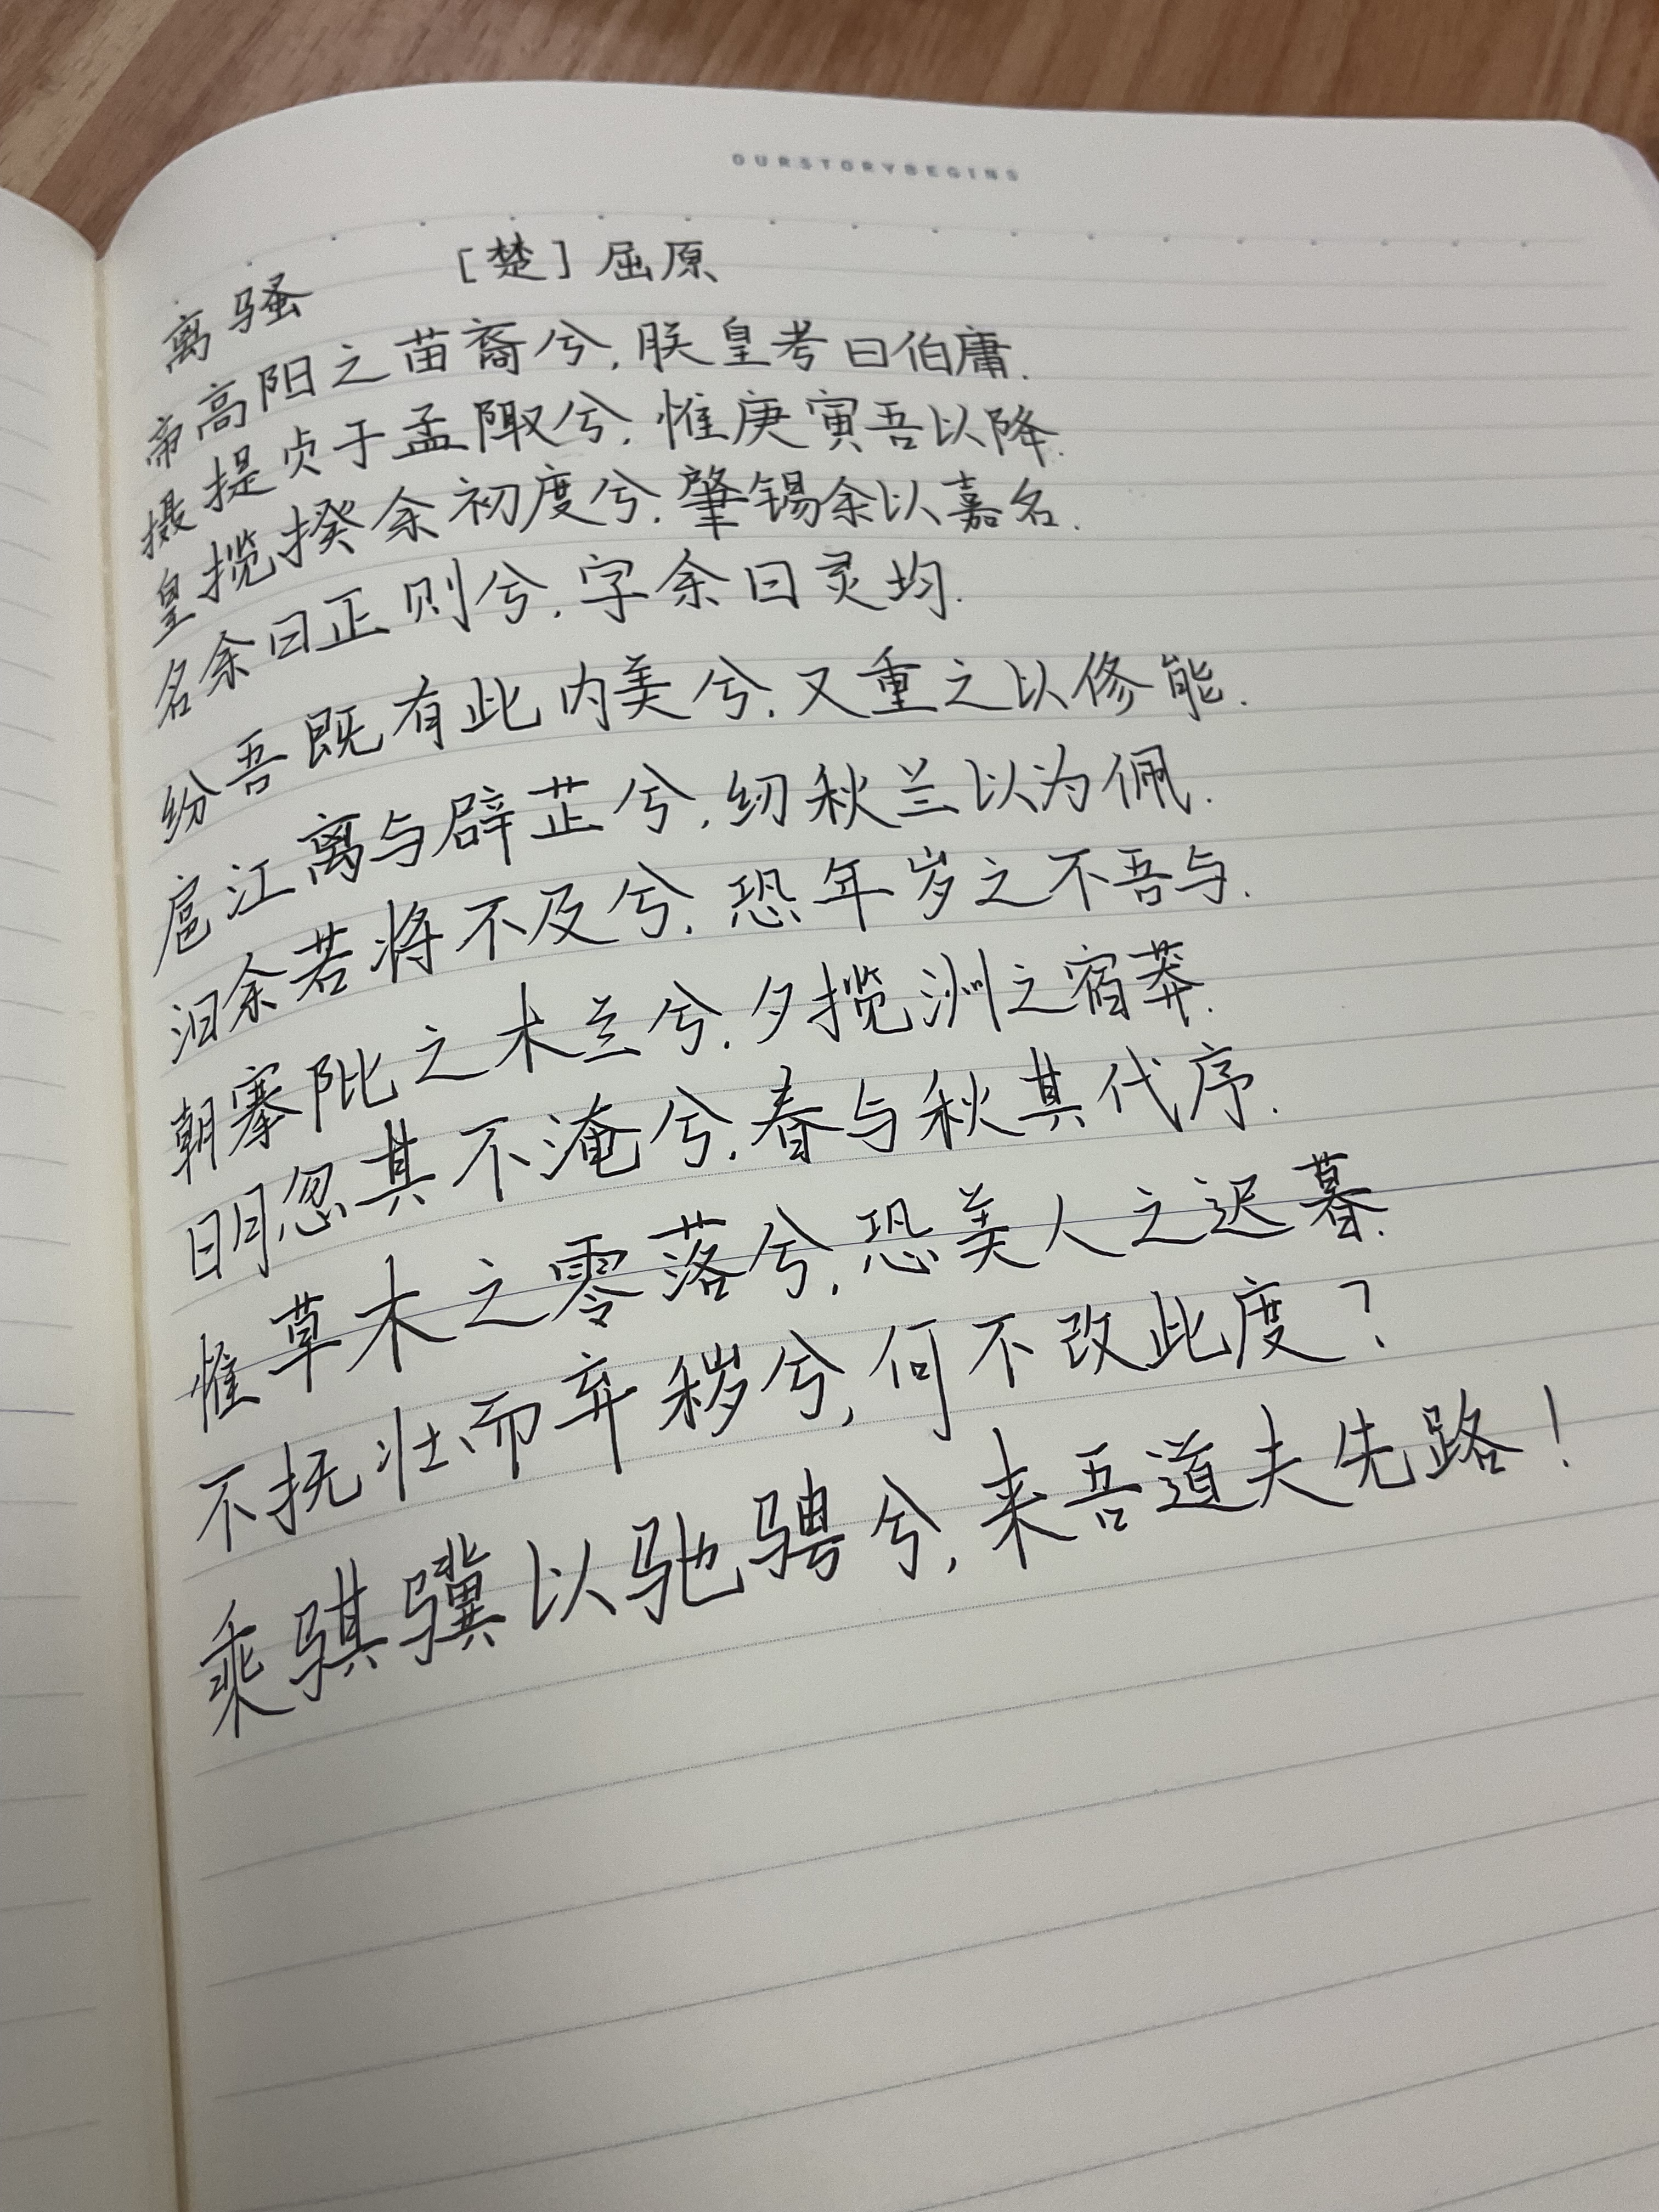 OURSTORYBEGINS
离骚 [楚]屈原
帝高阳之苗裔兮,朕皇考曰伯庸.
摄提贞于孟陬兮,惟庚寅吾以降.
皇揽揆余初度兮,肇锡余以嘉名.
名余曰正则兮,字余曰灵均.
纷吾既有此内美兮,又重之以修能.
扈江离与辟芷兮,纫秋兰以为佩.
汩余若将不及兮,恐年岁之不吾与.
朝搴阰之木兰兮,夕揽洲之宿莽.
日月忽其不淹兮,春与秋其代序.
惟草木之零落兮,恐美人之迟暮.
不抚壮而弃秽兮,何不改此度?
乘骐骥以驰骋兮,来吾道夫先路!